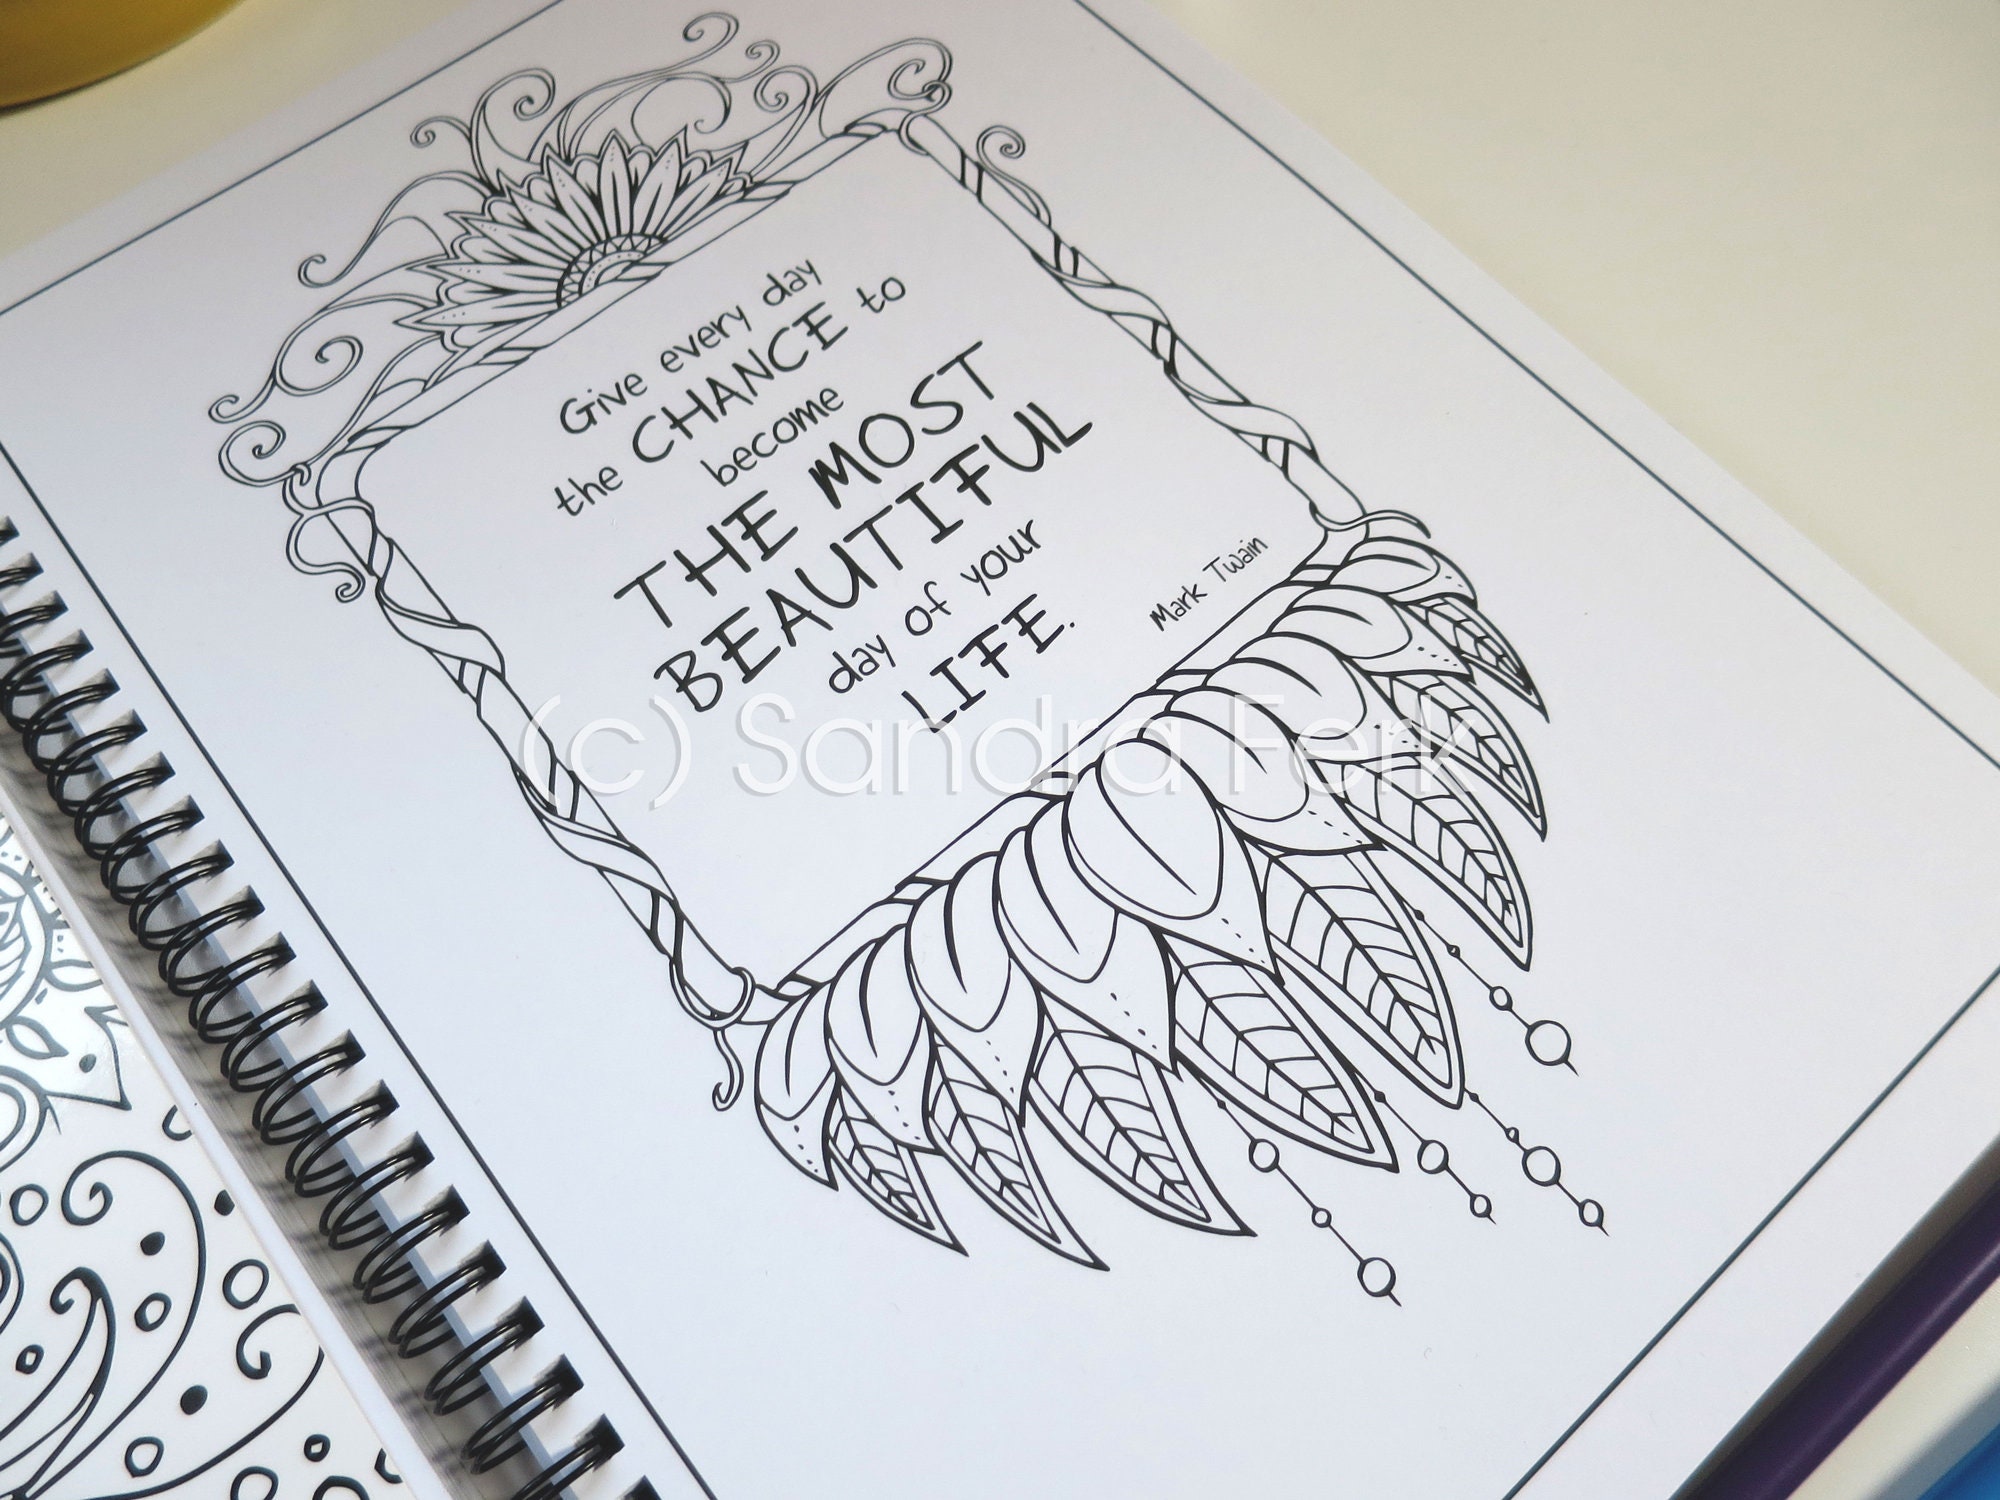 Give every day
the CHANCE to
become
THE MOST
BEAUTIFUL
day of your
LIFE.
Mark Twain
(c) Sandra Ferk